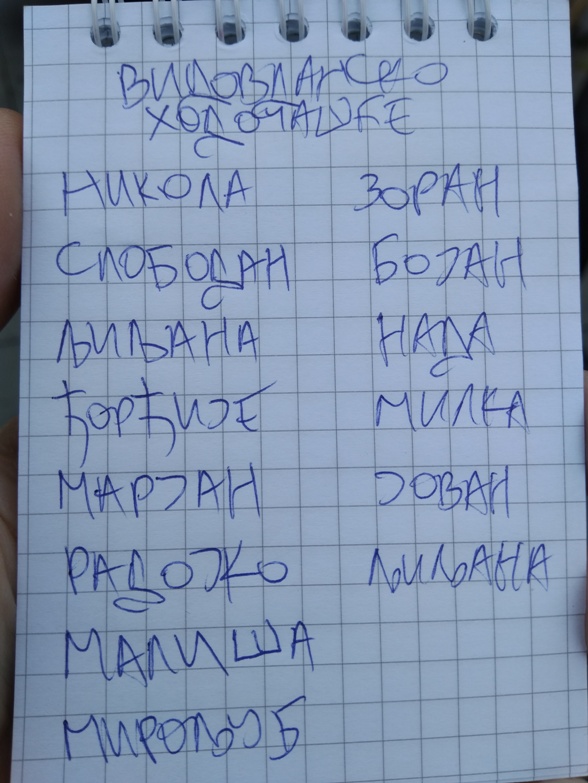 ВИДОВДАНСКО
ХОДОЧАШЋЕ
НИКОЛА
СЛОБОДАН
ЉИЉАНА
ЂОРЂИЈЕ
МАРЈАН
РАДОЈКО
МАЛИША
МИРОЉУБ
ЗОРАН
БОЈАН
НАДА
МИЛКА
ЈОВАН
ЉИЉАНА